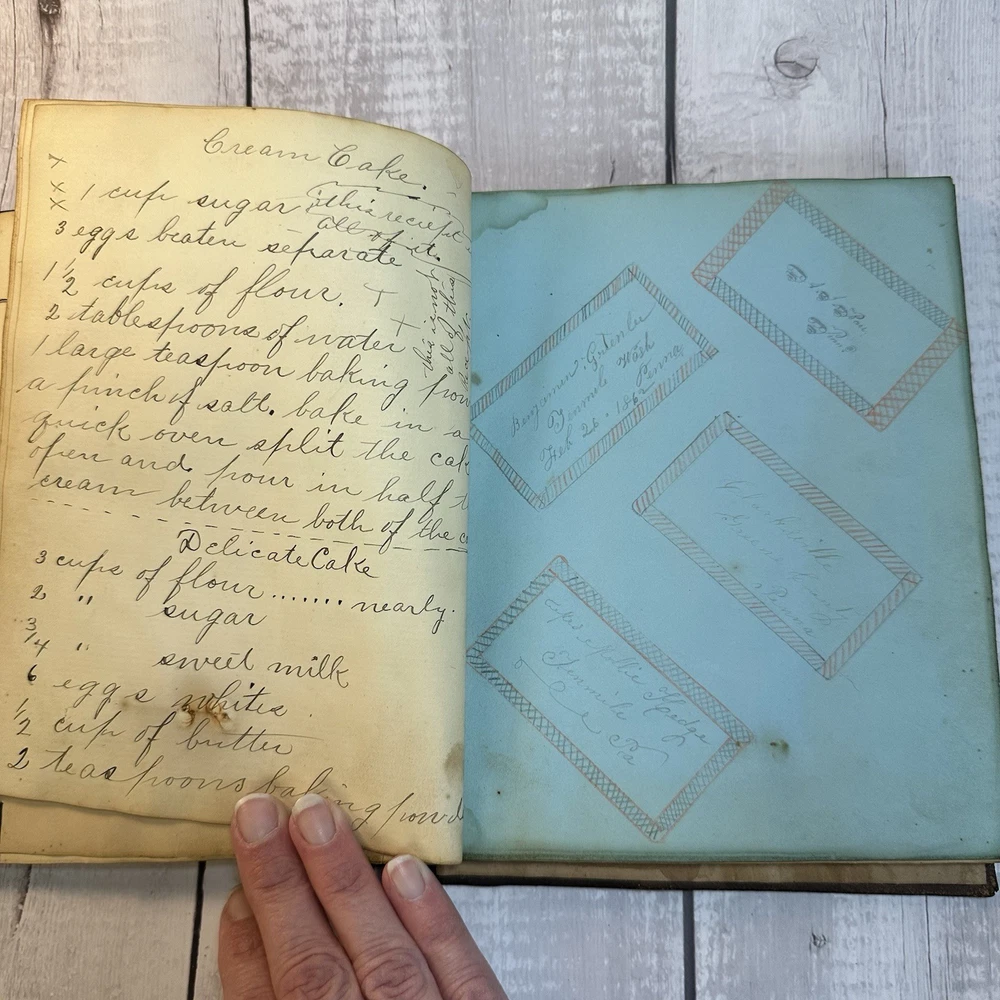 Cream Cake.
x x x
1 cup sugar
this reciept
all of it.
3 eggs beaten separate
1 1/2 cups of flour.
2 tablespoons of water
this is not
all of this
1 large teaspoon baking pow
a pinch of salt. bake in a
quick oven split the cak
open and pour in half t
cream between both of the c
Delicate Cake
3 cups of flour ....... nearly.
2 " sugar
3/4 " sweet milk
6 eggs whites
1/2 cup of butter
2 teaspoons baking powd
Benjamin
Tenmile Wash
Feb 26 Penna
Clarksville
Penna
Hedge
Tenmile
Pa